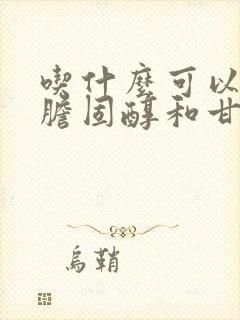 喫什麼可以
膽固醇和甘
烏鞘